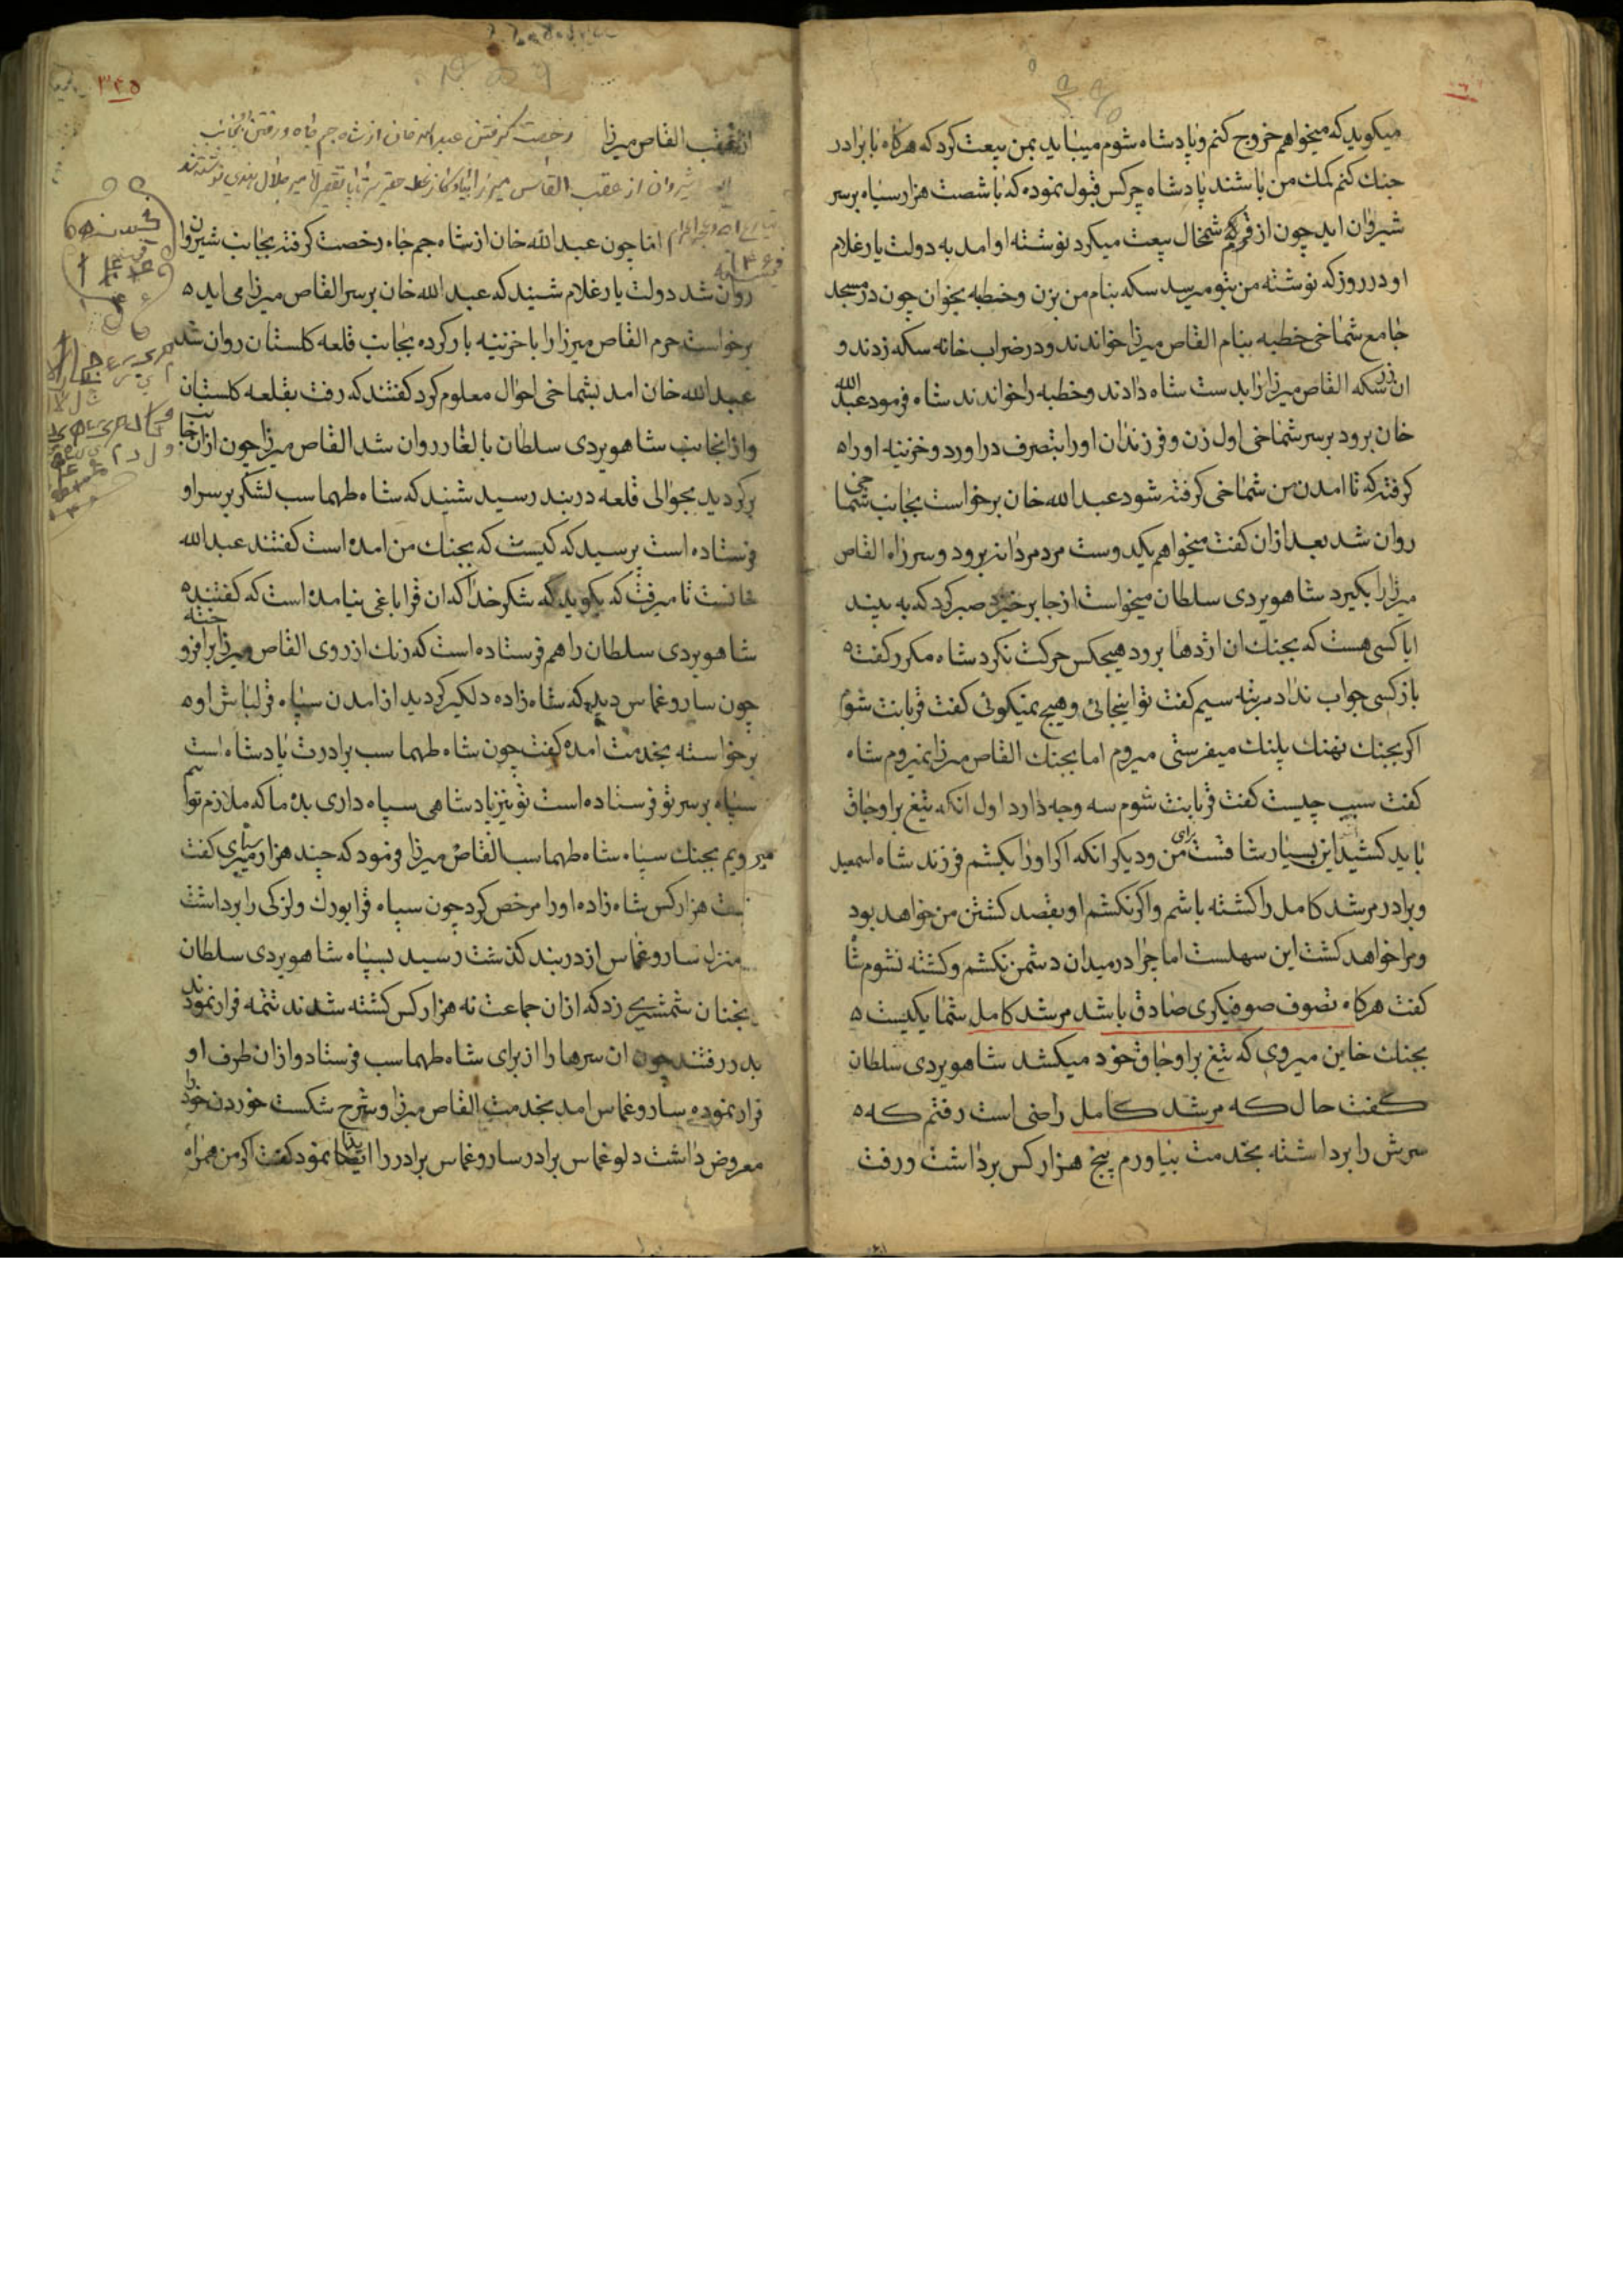 میکوید که میخواهم خروج کنم و پادشاه شوم میباید بمن بیعت کرد که هرکاه با برادر
جنك کنم کمك من باشند پادشاه چرکس قبول نموده که باشصت هزار سپاه برسر
شیروان اید چون از شمخال بیعت میکرد نوشته او امد به دولت یار غلام
او در روز که نوشته من بتو میرسد سکه بنام من بزن و خطبه بخوان چون در مسجد
جامع شماخی خطبه بنام القاص میرزا خواندند و در ضراب خانه سکه زدند و
ان زر سکه القاص میرزا را بدست شاه دادند و خطبه را خواندند شاه فرمود عبد الله
خان برود برسر شماخی اول زن و فرزندان اورا بتصرف دراورد و خزینه اورا ه
کرفته که تا امدن من شماخی کرفته شود عبد الله خان برخواست بجانب شماخی
روان شد بعد ازان کفت میخواهم یکدوست مرد مردانه برود و سر راه القاص
میرزا را بکیرد شاهویردی سلطان میخواست ازجا برخیزد صبر کرد که به بیند
ایا کسی هست که بجنك ان اژدها برود هیچکس حرکت نکرد شاه مکرر کفت ه
باز کسی جواب نداد مرتبه سیم کفت تو اینجائی و هیچ نمیکوئی کفت قربانت شوم
اکر بجنك نهنك پلنك میفرستی میروم اما بجنك القاص میرزا نمیروم شاه
کفت سبب چیست کفت قربانت شوم سه وجه دارد اول انکه تیغ براوجاق
باید کشید این بسیار شاقست برای من و دیکر انکه اکر اورا بکشم فرزند شاه اسمعیل
و برادر مرشد کامل را کشته باشم و اکر نکشم او بقصد کشتن من خواهد بود
و مرا خواهد کشت این سهلست اما چرا در میدان دشمن نکشم و کشته نشوم شاه
کفت هرکاه تصوف صوفیکری صادق باشد مرشد کامل شما یکیست ه
بجنك خاین میروی که تیغ براوجاق خود میکشد شاهویردی سلطان
کفت حال که مرشد کامل راضی است رفتم که ه
سرش را برداشته بخدمت بیاورم پنج هزار کس برداشت و رفت
۳۴۵
از عقب القاص میرزا رخصت کرفتن عبد الله خان از شاه جم جاه و رفتن بجانب
شیروان از عقب القاس میرزا
اما چون عبد الله خان از شاه جم جاه رخصت کرفته بجانب شیروان
روان شد دولت یار غلام شنید که عبد الله خان برسر القاص میرزا می اید ه
برخواست حرم القاص میرزا را با خزینه بار کرده بجانب قلعه کلستان روان شد
عبد الله خان امد بشماخی احوال معلوم کرد کفتند که رفت بقلعه کلستان
و ازانجانب شاهویردی سلطان بالغار روان شد القاص میرزا چون ازان جانب
برکردید بحوالی قلعه دربند رسید شنید که شاه طهماسب لشکر برسر او
فرستاده است پرسید که کیست که بجنك من امده است کفتند عبد الله
خانست تا میرفت که بکوید که شکر خدا که ان قراباغی نیامده است که کفتند ه
شاهویردی سلطان را هم فرستاده است که رنك از روی القاص میرزا
چون ساروغماس دید که شاه زاده دلکیر کردید از امدن سپاه قزلباش او ه
برخواسته بخدمت امده کفت چون شاه طهماسب برادرت پادشاه است
سپاه برسر تو فرستاده است تو نیز پادشاهی سپاه داری بده ما که ملازم توایم
میرویم بجنك سپاه شاه طهماسب القاص میرزا فرمود که چند هزار میبری کفت
بیست هزار کس شاه زاده اورا مرخص کرد چون سپاه قرابورك و لزکی را برداشت
منزل ساروغماس از دربند کذشت رسید بسپاه شاهویردی سلطان
بجنان شمشیری زد که ازان جماعت نه هزار کس کشته شدند تتمه فرار نمودند
بدر رفتند چون ان سرها را از برای شاه طهماسب فرستاد و ازان طرف او
فرار نموده ساروغماس امد بخدمت القاص میرزا و شرح شکست خوردن خود را
معروض داشت دلوغماس برادر ساروغماس برادر را نمود کفت اکر من همراه